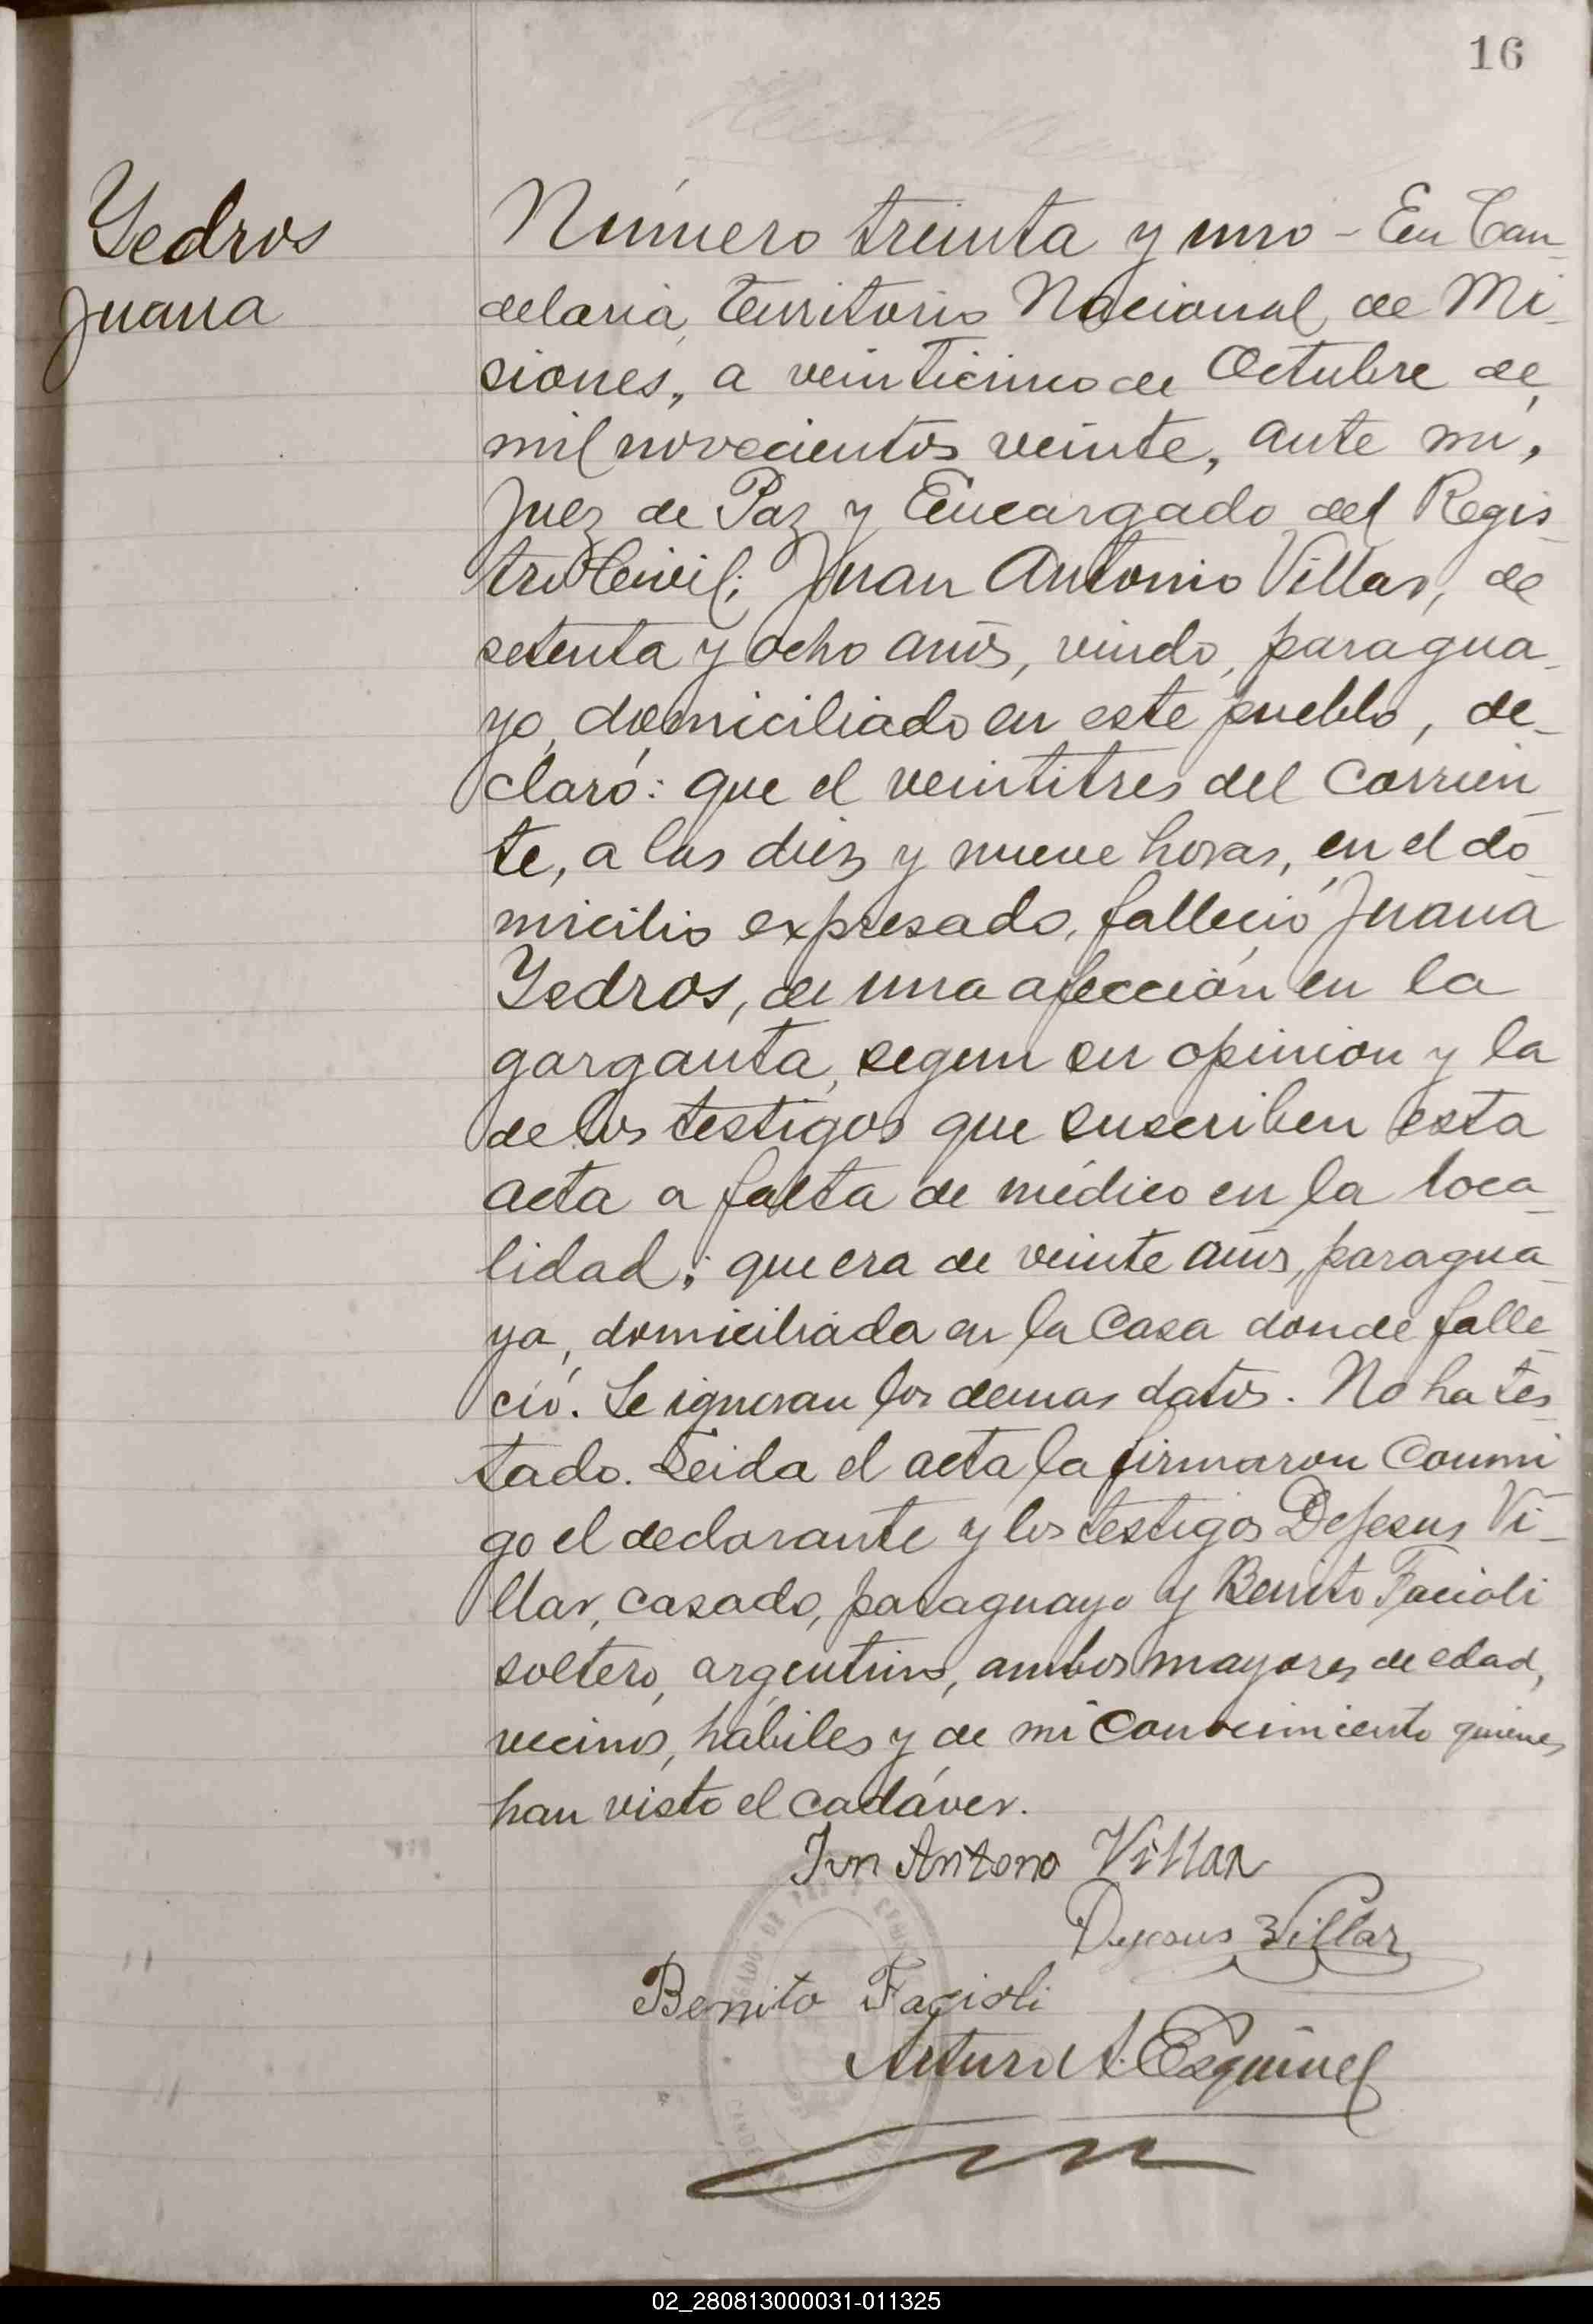 16
Yedros
Juana
Número treinta y uno - En Can-
delaria, territorio Nacional de Mi-
siones, a veinticinco de Octubre de
mil novecientos veinte, ante mí,
Juez de Paz y Encargado del Regis-
tro Civil; Juan Antonio Villar, de
setenta y ocho años, viudo, paragua-
yo, domiciliado en este pueblo, de-
claró: que el veintitres del corrien-
te, a las diez y nueve horas, en el do-
micilio expresado, falleció Juana
Yedros, de una afección en la
garganta, segun su opinion y la
de los testigos que suscriben esta
acta a falta de médico en la loca-
lidad; que era de veinte años, paragua-
ya, domiciliada en la casa donde falle-
ció. Se ignoran los demas datos. No ha tes-
tado. Leida el acta la firmaron conmi-
go el declarante y los testigos Dejesus Vi-
llar, casado, paraguayo y Benito Facioli
soltero, argentino, ambos mayores de edad,
vecinos, hábiles y de mi conocimiento quienes
han visto el cadáver.
Jun Antono Villar
Dejesus Villar
Benito Facioli
Arturo A. Esquivel
02_280813000031-011325